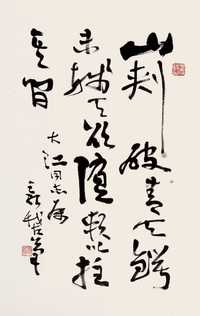 山刺破青天锷
未残天欲堕赖以拄
其间
大江同志属